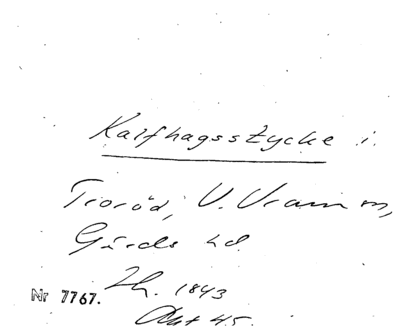 Kalfhagsstycke i.
Tioröd, V. Vram sn,
Gärds hd.
Lh. 1843
Nr 7767.
Akt 45.